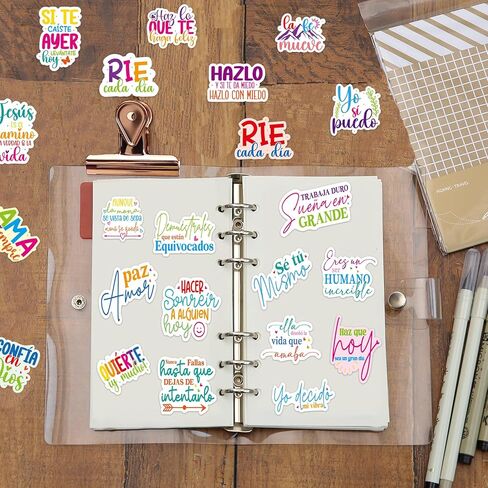 SI TE
CAÍSTE
AYER
LEVÁNTATE
hoy
Haz lo
QUE TE
haga feliz
La fe
mueve
RIE
cada día
HAZLO
Y SI TE DA MIEDO
HAZLO CON MIEDO
Yo
sí
puedo
Jesús
es el
camino
LA VERDAD & LA
vida
RIE
cada día
AMA
siempre
AUNQUE
la mona
SE VISTA DE SEDA
Demuéstrales
que están
Equivocados
TRABAJA DURO
Sueña en
GRANDE
paz
Amor
HACER
Sonreír
A ALGUIEN
hoy
Sé tú
Mismo
Eres un
SER
HUMANO
increíble
ella
diseñó la
vida que
amaba
Haz que
hoy
sea un gran día
CONFÍA
en
Dios
QUIERTE
¡y mucho!
Nunca Fallas
hasta que
DEJAS DE
intentarlo
Yo decido
mi vibra!